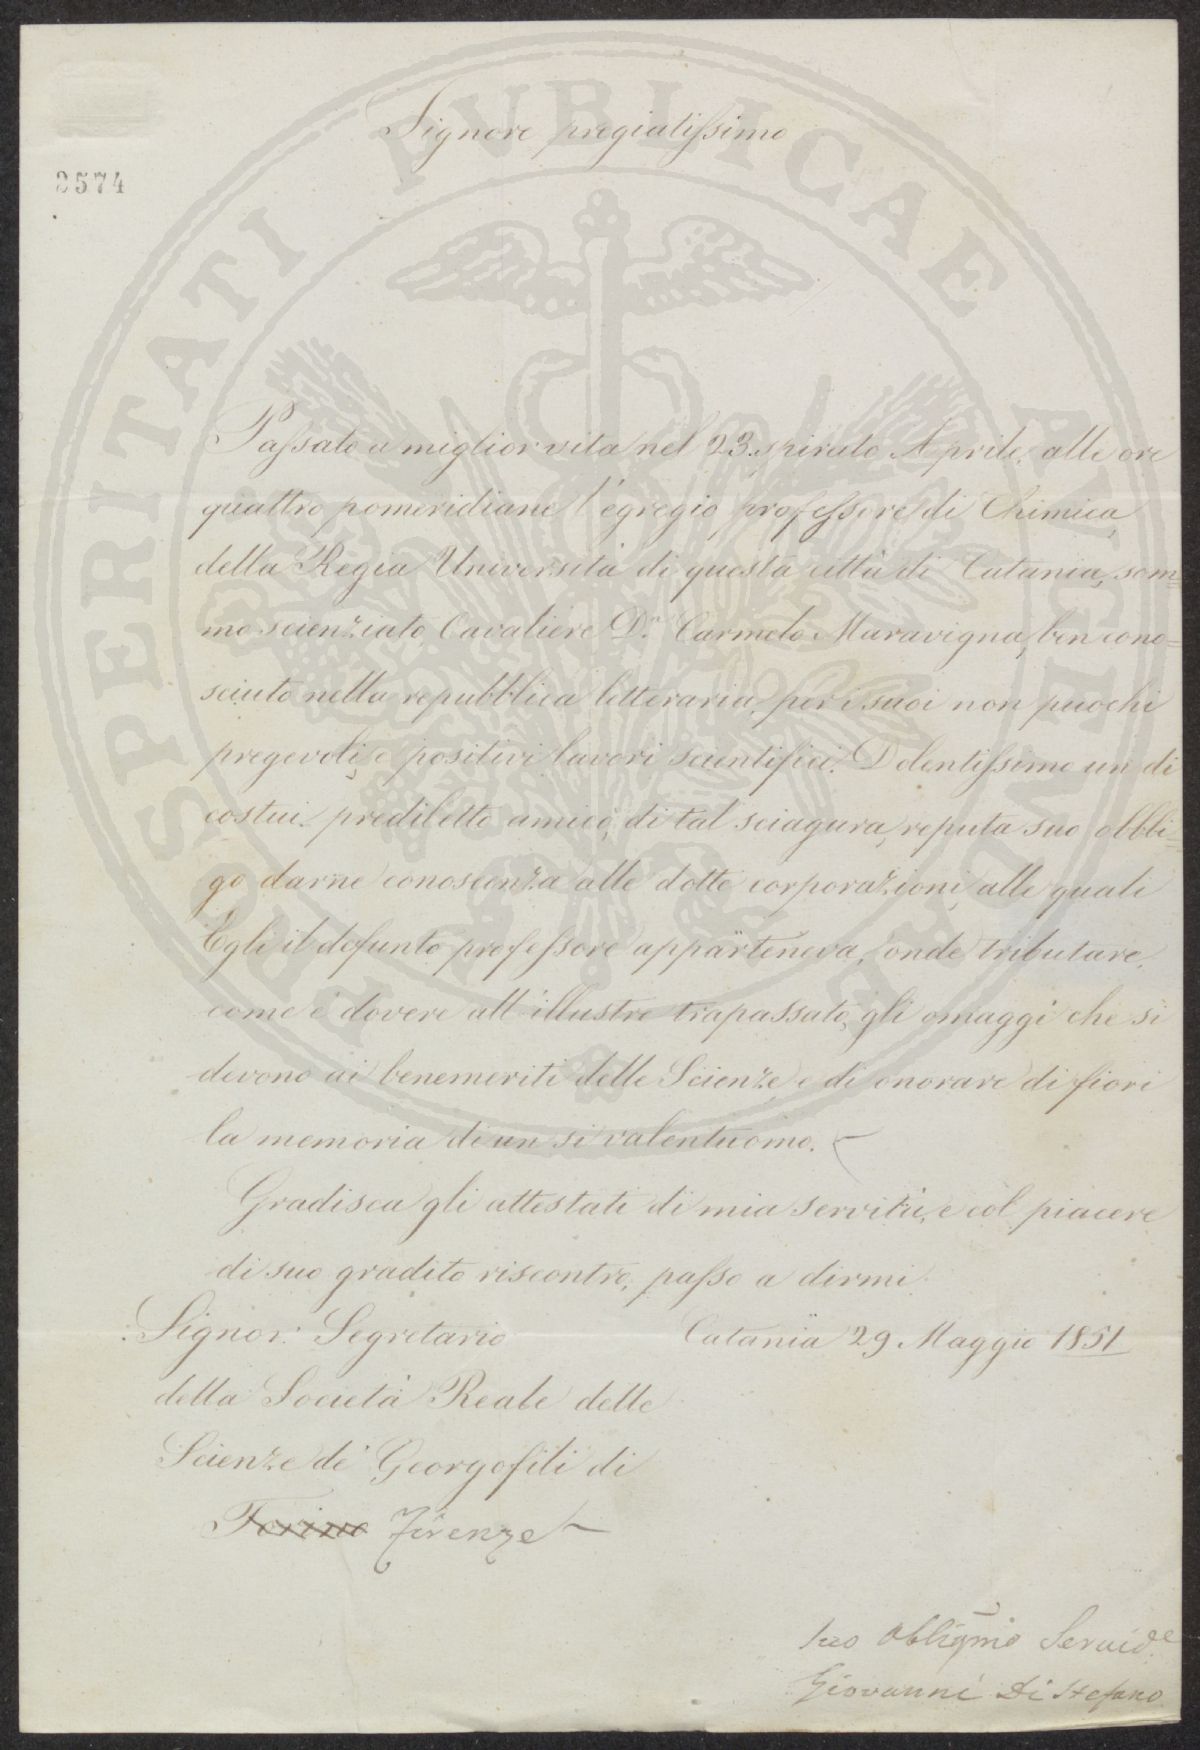 PROSPERITATI PVBLICAE AVGENDAE
Signore pregiatissimo
2574
Passato a miglior vita nel 23. spirato Aprile, alle ore
quattro pomeridiane l'egregio professore di Chimica
della Regia Università di questa città di Catania, som=
mo scienziato Cavaliere D.n Carmelo Maravigna, ben cono=
sciuto nella repubblica litteraria, per i suoi non puochi
pregevoli, e positivi lavori scientifici. Dolentissimo un di
costui prediletto amico, di tal sciagura, reputa suo obbli=
go darne conoscenza alle dotte corporazioni, alle quali
Egli il defunto professore apparteneva, onde tributare,
come è dovere all'illustre trapassato, gli omaggi che si
devono ai benemeriti delle Scienze e di onorare di fiori
la memoria di un sì valentuomo.
Gradisca gli attestati di mia servitù, e col piacere
di suo gradito riscontro, passo a dirmi
Signor: Segretario
Catania 29 Maggio 1851
della Società Reale delle
Scienze de' Georgofili di
Torino Firenze
suo obbligmo Servid.e
Giovanni Di Stefano